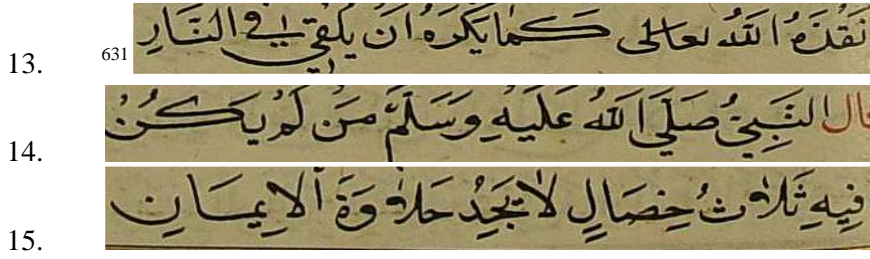 13. 631 نَقَذَهُ اللهُ تعالى كَمَا يَكْرَهُ اَنْ يُلْقٰي فِي النَّارِ
14. قال النَّبِيُّ صَلَّي اللهُ عَلَيْهِ وَسَلَّمَ مَنْ لَمْ يَكُنْ
15. فِيهِ ثَلٰاثُ خِصَالٍ لَا يَجِدُ حَلَاوَةَ الْاِيمَانِ